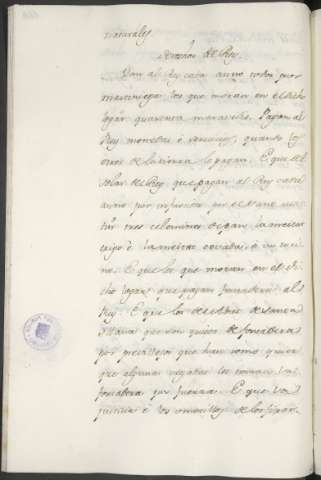 naturales
Derechos del Rey.
Dan al Rey cada anno todos por
martiniega los que moran en el dicho
logar quarenta maravedis. Pagan al
Rey monedas é servicios, quando los
otros de la tierra lo pagan. E que del
solar del Rey que pagan al Rey cada
anno por infurcion por el Sant
tres celemines de pan, la meitat
trigo é la meitat cevada, é un
E que los que moran en el di-
cho logar que pagan fonsadera al
Rey. E que los de
Maria que son quitos de fonsadera
por previllejos que han como quier
que algunas vegadas les toman la
fonsadera por fuerza. E que la
justicia é los omecillos de los